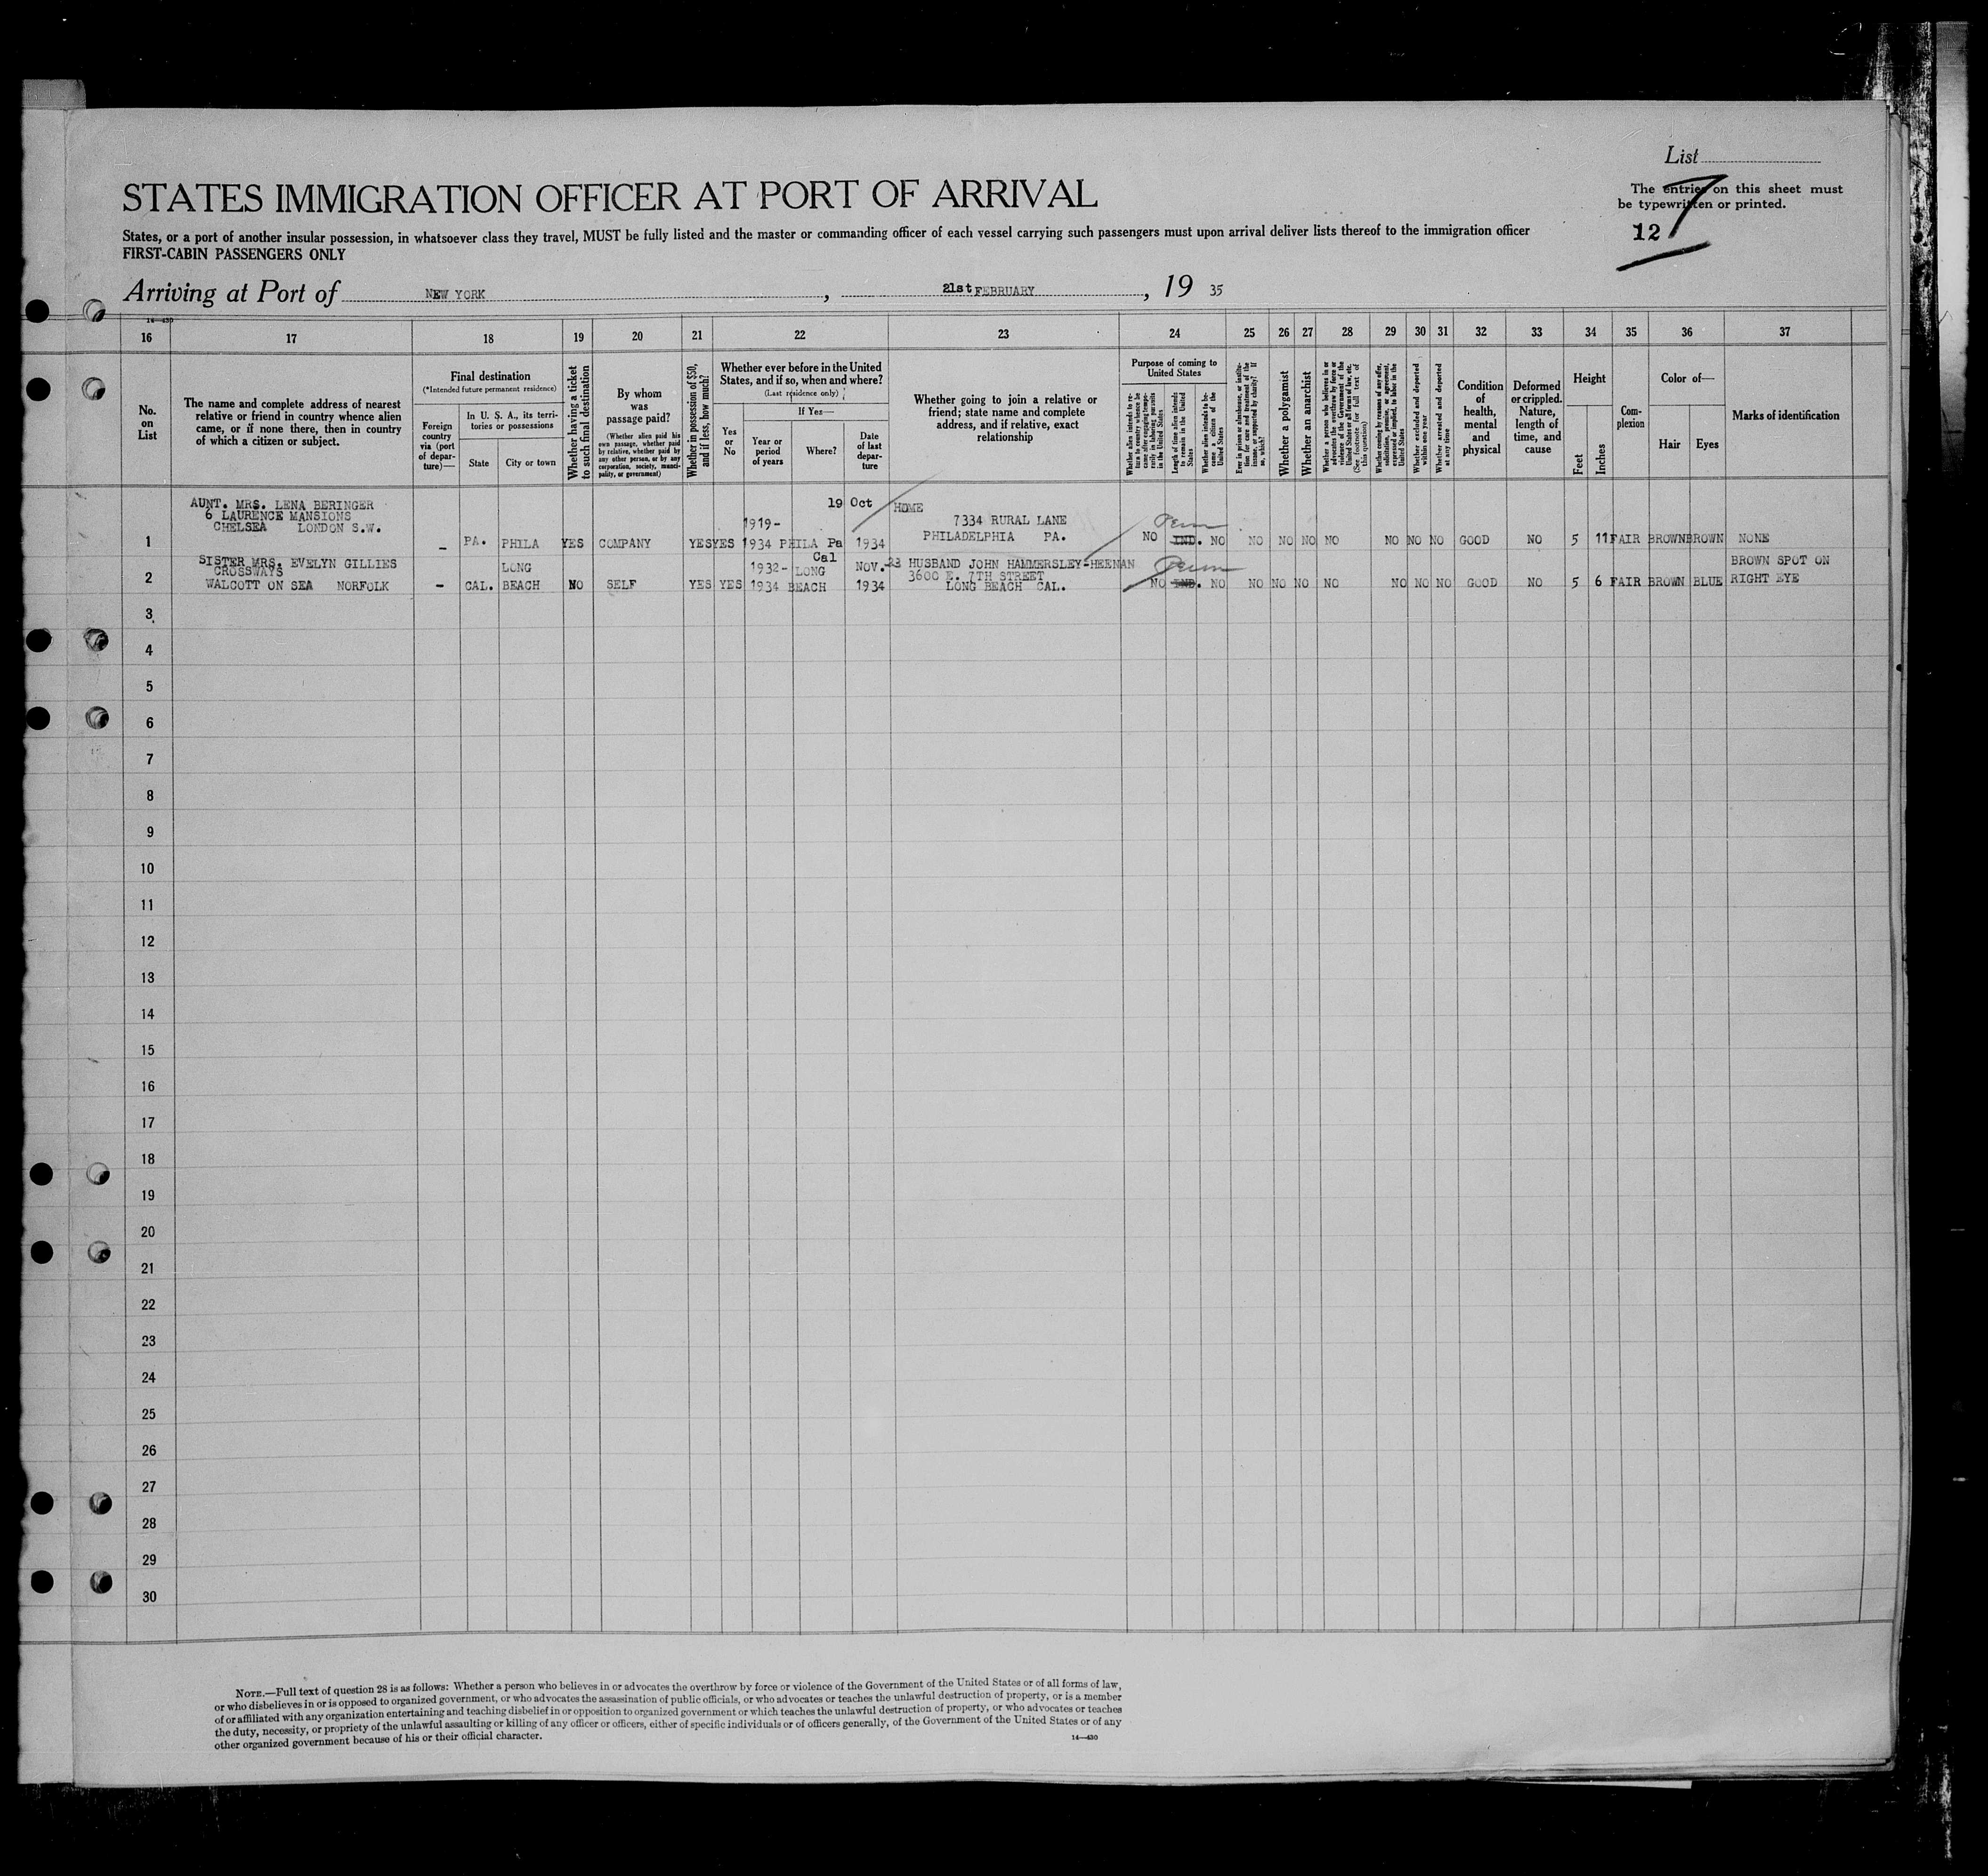 List
The entries on this sheet must
be typewritten or printed.
7
12
STATES IMMIGRATION OFFICER AT PORT OF ARRIVAL
States, or a port of another insular possession, in whatsoever class they travel, MUST be fully listed and the master or commanding officer of each vessel carrying such passengers must upon arrival deliver lists thereof to the immigration officer
FIRST-CABIN PASSENGERS ONLY
Arriving at Port of NEW YORK, 21st FEBRUARY, 19 35
14—430
16 17 18 19 20 21 22 23 24 25 26 27 28 29 30 31 32 33 34 35 36 37
No.
on
List
The name and complete address of nearest
relative or friend in country whence alien
came, or if none there, then in country
of which a citizen or subject.
Final destination
(*Intended future permanent residence)
Foreign
country
via (port
of depar-
ture)—
In U. S. A., its terri-
tories or possessions
State City or town
Whether having a ticket
to such final destination
By whom
was
passage paid?
(Whether alien paid his
own passage, whether paid
by relative, whether paid by
any other person, or by any
corporation, society, munici-
pality, or government)
Whether in possession of $50,
and if less, how much?
Whether ever before in the United
States, and if so, when and where?
(Last residence only)
Yes
or
No
If Yes—
Year or
period
of years
Where?
Date
of last
depar-
ture
Whether going to join a relative or
friend; state name and complete
address, and if relative, exact
relationship
Purpose of coming to
United States
Whether alien intends to re-
turn to country whence he
came after engaging tempo-
rarily in laboring pursuits
in the United States
Length of time alien intends
to remain in the United
States
Whether alien intends to be-
come a citizen of the
United States
Ever in prison or almshouse, or institu-
tion for care and treatment of the
insane, or supported by charity? If
so, which?
Whether a polygamist
Whether an anarchist
Whether a person who believes in or
advocates the overthrow by force or
violence of the Government of the
United States or all forms of law, etc.
(See footnote for full text of
this question)
Whether coming by reasons of any offer,
solicitation, promise, or agreement,
expressed or implied, to labor in the
United States
Whether excluded and deported
within one year
Whether arrested and deported
at any time
Condition
of
health,
mental
and
physical
Deformed
or crippled.
Nature,
length of
time, and
cause
Height
Feet
Inches
Com-
plexion
Color of—
Hair Eyes
Marks of identification
AUNT. MRS. LENA BERINGER
6 LAURENCE MANSIONS
CHELSEA LONDON S.W.
19 Oct HOME
1919- 7334 RURAL LANE
PHILADELPHIA PA.
1 – PA. PHILA YES COMPANY YES YES 1934 PHILA Pa 1934 NO IND. NO NO NO NO NO NO NO NO GOOD NO 5 11 FAIR BROWN BROWN NONE
Perm
SISTER MRS. EVELYN GILLIES
CROSSWAYS
WALCOTT ON SEA NORFOLK
LONG
Cal
1932- LONG NOV. 23 HUSBAND JOHN HAMMERSLEY-HEENAN
3600 E. 7TH STREET
LONG BEACH CAL.
Perm
BROWN SPOT ON
2 – CAL. BEACH NO SELF YES YES 1934 BEACH 1934 NO IND. NO NO NO NO NO NO NO NO GOOD NO 5 6 FAIR BROWN BLUE RIGHT EYE
3
4
5
6
7
8
9
10
11
12
13
14
15
16
17
18
19
20
21
22
23
24
25
26
27
28
29
30
NOTE.—Full text of question 28 is as follows: Whether a person who believes in or advocates the overthrow by force or violence of the Government of the United States or of all forms of law,
or who disbelieves in or is opposed to organized government, or who advocates the assassination of public officials, or who advocates or teaches the unlawful destruction of property, or is a member
of or affiliated with any organization entertaining and teaching disbelief in or opposition to organized government or which teaches the unlawful destruction of property, or who advocates or teaches
the duty, necessity, or propriety of the unlawful assaulting or killing of any officer or officers, either of specific individuals or of officers generally, of the Government of the United States or of any
other organized government because of his or their official character.
14—430